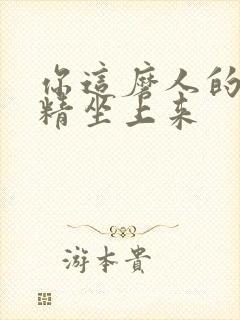 你這麼人的
精坐上来
游本貴